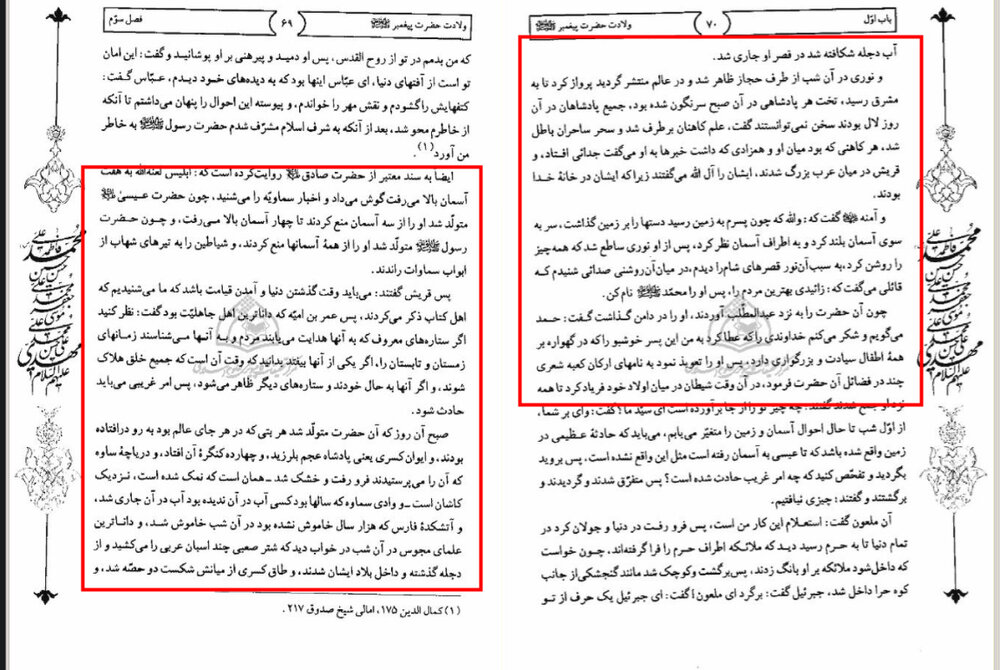 فصل سوّم
۶۹
ولادت حضرت پیغمبر ﷺ
که من بدمم در تو از روح القدس، پس او دمید و پیرهنی بر او پوشانید و گفت: این امان
تو است از آفتهای دنیا، ای عبّاس اینها بود که به دیده‌های خود دیدم، عبّاس گفت:
کتفهایش را گشودم و نقش مهر را خواندم، و پیوسته این احوال را پنهان می‌داشتم تا آنکه
از خاطرم محو شد، بعد از آنکه به شرف اسلام مشرّف شدم حضرت رسول ﷺ به خاطر
من آورد(۱).
ایضا به سند معتبر از حضرت صادق روایت کرده است که: ابلیس لعنه‌الله به هفت
آسمان بالا می‌رفت گوش می‌داد و اخبار سماویّه را می‌شنید، چون حضرت عیسیٰ
متولّد شد او را از سه آسمان منع کردند تا چهار آسمان بالا می‌رفت، و چون حضرت
رسول ﷺ متولّد شد او را از همهٔ آسمانها منع کردند، و شیاطین را به تیرهای شهاب از
ابواب سماوات راندند.
پس قریش گفتند: می‌باید وقت گذشتن دنیا و آمدن قیامت باشد که ما می‌شنیدیم که
اهل کتاب ذکر می‌کردند، پس عمر بن امیّه که داناترین اهل جاهلیّت بود گفت: نظر کنید
اگر ستاره‌های معروف که به آنها هدایت می‌یابند مردم و به آنها می‌شناسند زمانهای
زمستان و تابستان را، اگر یکی از آنها بیفتد بدانید که وقت آن است که جمیع خلق هلاک
شوند، و اگر آنها به حال خودند و ستاره‌های دیگر ظاهر می‌شود، پس امر غریبی باید
حادث شود.
صبح آن روز که آن حضرت متولّد شد هر بتی که در هر جای عالم بود به رو در افتاده
بودند، و ایوان کسری یعنی پادشاه عجم بلرزید، و چهارده کنگرهٔ آن افتاد، و دریاچهٔ ساوه
که آن را می‌پرستیدند فرو رفت و خشک شد ـ همان است که نمک شده است، نزدیک
کاشان است ـ و وادی سماوه که سالها بود کسی آب در آن ندیده بود آب در آن جاری شد،
و آتشکدهٔ فارس که هزار سال خاموش نشده بود در آن شب خاموش شد، و داناترین
علمای مجوس در آن شب در خواب دید که شتر صعبی چند اسبان عربی را می‌کشید و از
دجله گذشته و داخل بلاد ایشان شدند، و طاق کسری از میانش شکست دو حصّه شد، و
(۱) کمال الدین ۱۷۵، امالی شیخ صدوق ۲۱۷.
باب اوّل
۷۰
ولادت حضرت پیغمبر ﷺ
آب دجله شکافته شد در قصر او جاری شد.
و نوری در آن شب از طرف حجاز ظاهر شد و در عالم منتشر گردید پرواز کرد تا به
مشرق رسید، تخت هر پادشاهی در آن صبح سرنگون شده بود، جمیع پادشاهان در آن
روز لال بودند سخن نمی‌توانستند گفت، علم کاهنان برطرف شد و سحر ساحران باطل
شد، هر کاهنی که بود میان او و همزادی که داشت خبرها به او می‌گفت جدائی افتاد، و
قریش در میان عرب بزرگ شدند، ایشان را آل الله می‌گفتند زیرا که ایشان در خانهٔ خدا
بودند.
و آمنه گفت که: والله که چون پسرم به زمین رسید دستها را بر زمین گذاشت، سر به
سوی آسمان بلند کرد و به اطراف آسمان نظر کرد، پس از او نوری ساطع شد که همه‌چیز
را روشن کرد، به سبب آن نور قصرهای شام را دیدم، در میان آن روشنی صدائی شنیدم که
قائلی می‌گفت که: زائیدی بهترین مردم را، پس او را محمّد ﷺ نام کن.
چون آن حضرت را به نزد عبدالمطّلب آوردند، او را در دامن گذاشت گفت: حمد
می‌گویم و شکر می‌کنم خداوندی را که عطا کرد به من این پسر خوشبو را که در گهواره بر
همهٔ اطفال سیادت و بزرگواری دارد، پس او را تعویذ نمود به نامهای ارکان کعبه شعری
چند در فضائل آن حضرت فرمود، در آن وقت شیطان در میان اولاد خود فریاد کرد تا همه
نزد او جمع شدند گفتند: چه چیز تو را از جا برآورده است ای سیّد ما؟ گفت: وای بر شما،
از اوّل شب تا حال احوال آسمان و زمین را متغیّر می‌یابم، می‌باید که حادثهٔ عظیمی در
زمین واقع شده باشد که تا عیسی به آسمان رفته است مثل این واقع نشده است، پس بروید
بگردید و تفحّص کنید که چه امر غریب حادث شده است؟ پس متفرّق شدند و گردیدند و
برگشتند و گفتند: چیزی نیافتیم.
آن ملعون گفت: استعلام این کار من است، پس فرو رفت در دنیا و جولان کرد در
تمام دنیا تا به حرم رسید دید که ملائکه اطراف حرم را فرا گرفته‌اند، چون خواست
که داخل شود ملائکه بر او بانگ زدند، پس برگشت و کوچک شد مانند گنجشکی از جانب
کوه حرا داخل شد، جبرئیل گفت: برگرد ای ملعون! گفت: ای جبرئیل یک حرف از تو